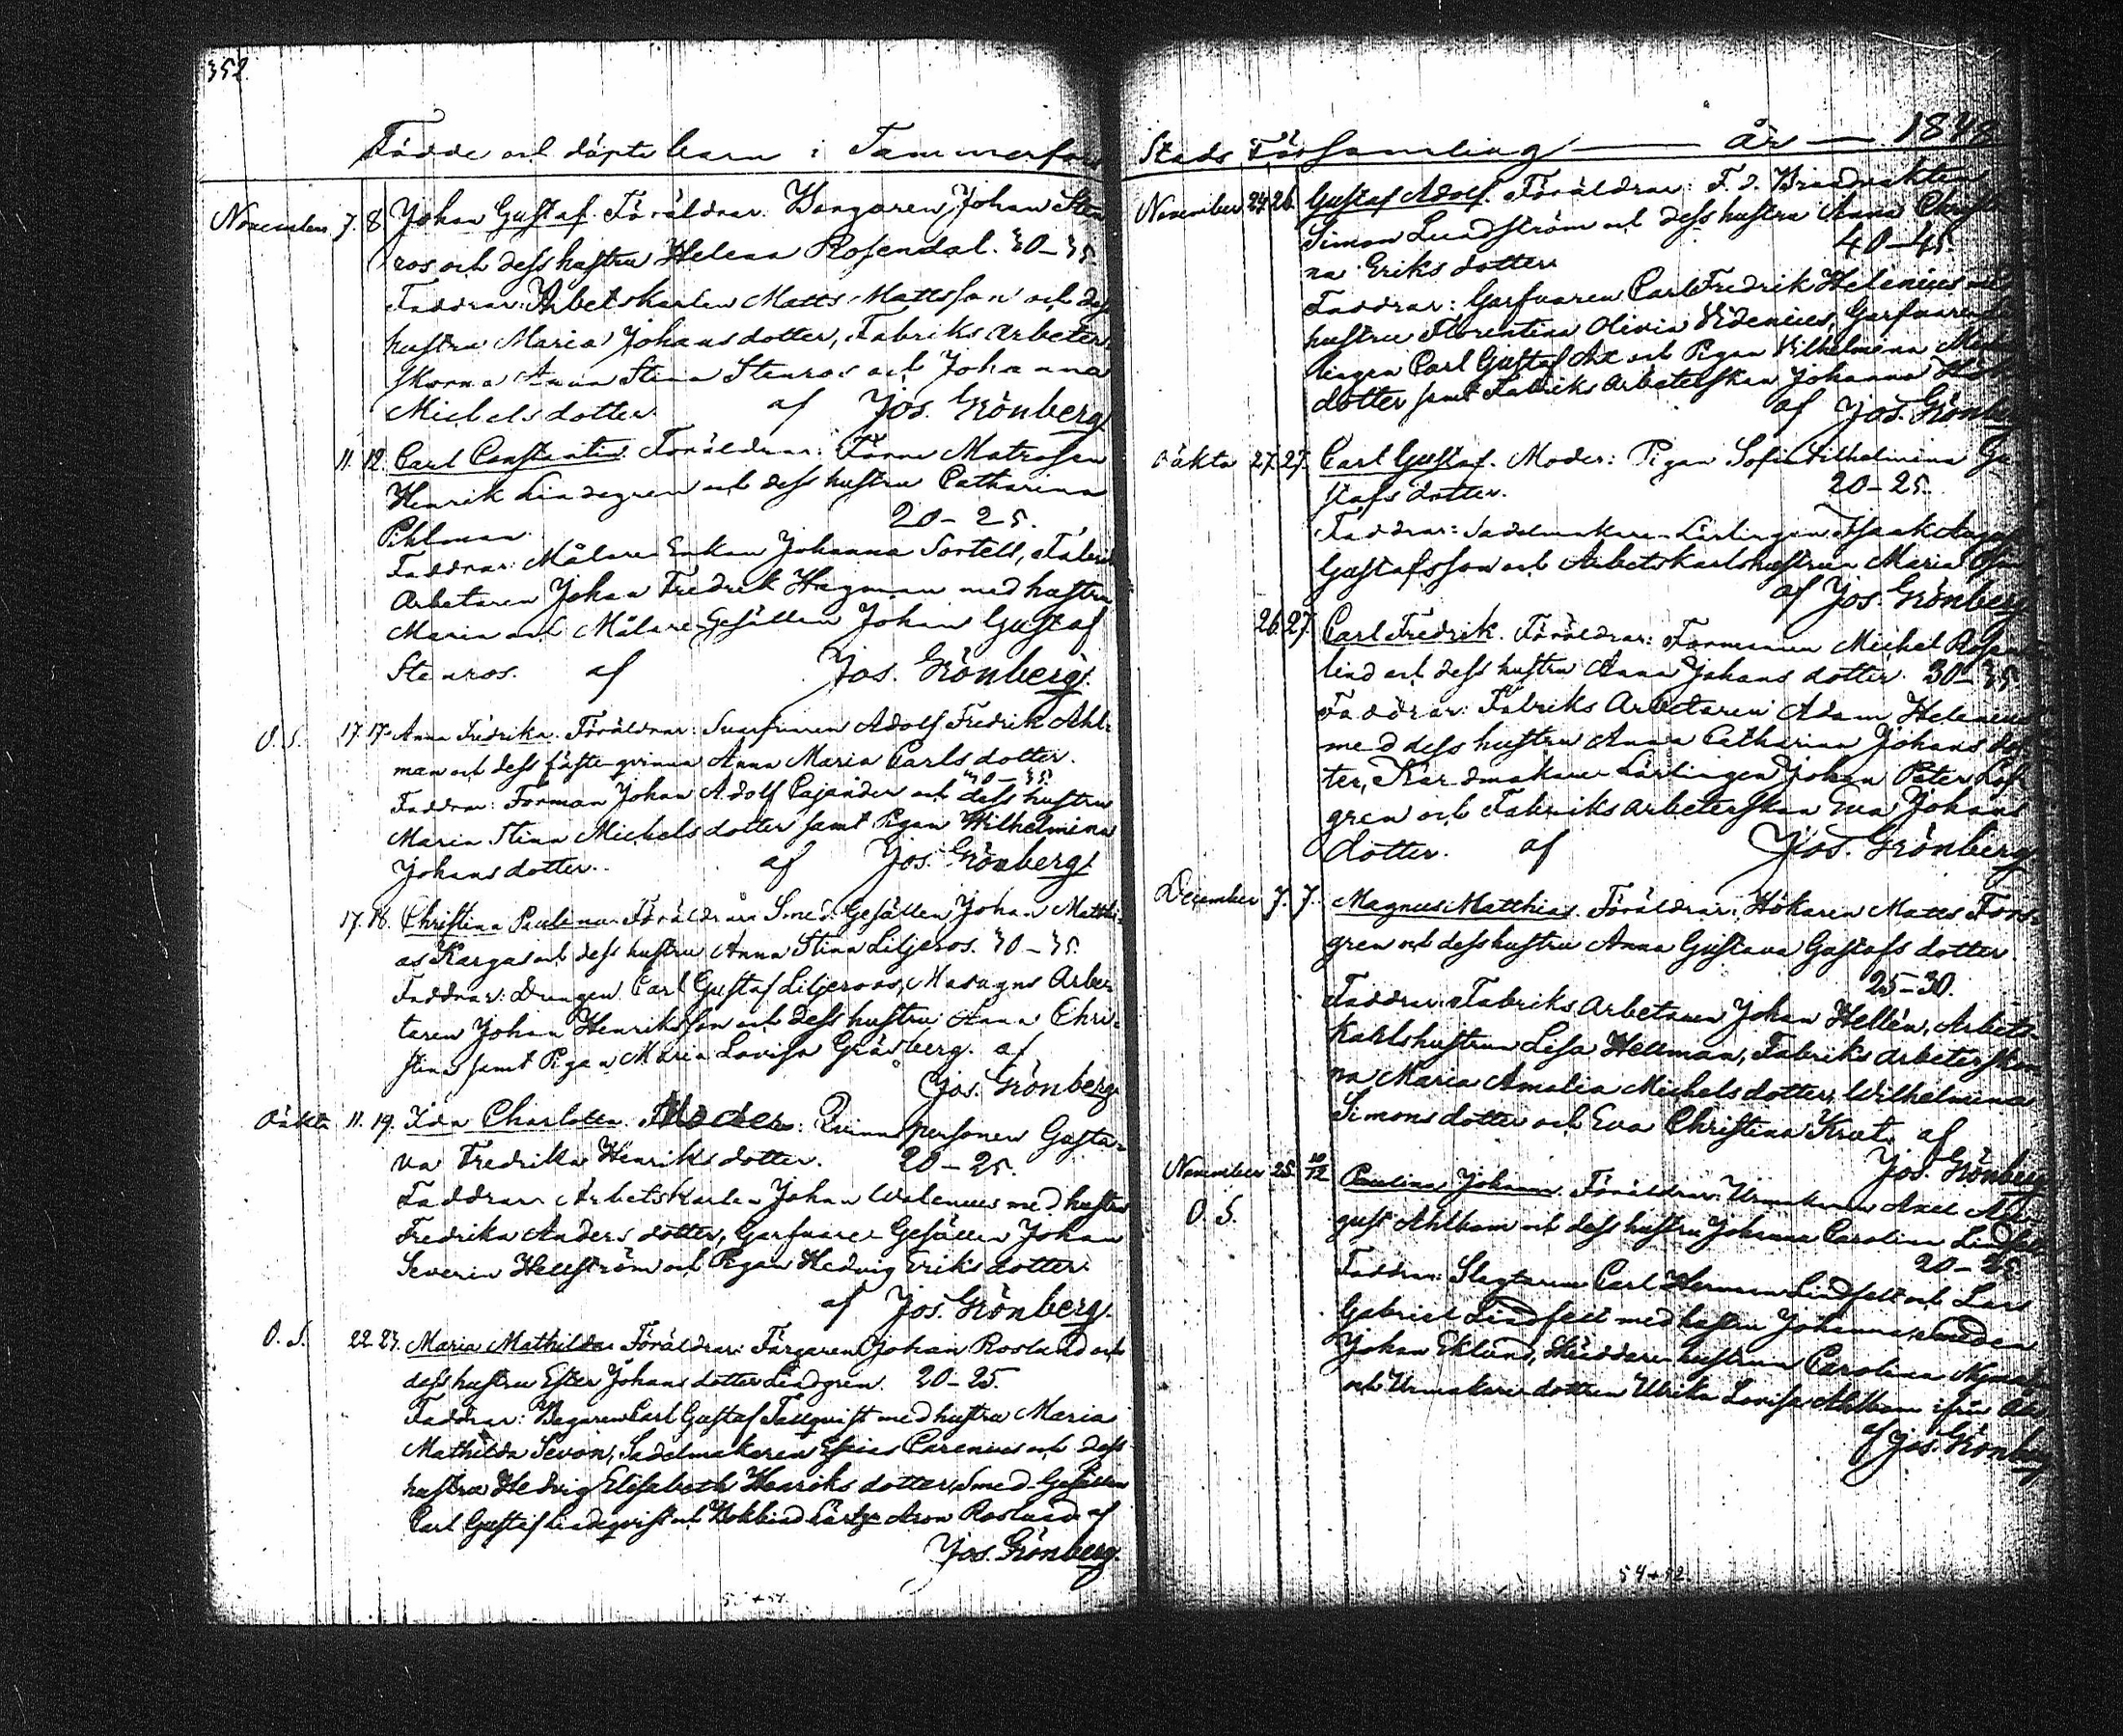 352
Födde och döpte barn i Tammerfors
November 7. 8 Johan Gustaf. Föräldrar: Johan Sten
ros och dess hustru Helena Rosendal. 30-35
Faddrar: Arbetskarlen Matts Mattsson och dess
hustru Maria Johansdotter, Fabriks Arbeter-
skorna Anna Stina Stenros och Johanna
Michelsdotter af Jos. Grönberg
11. 12. Carl Constantin. Föräldrar: Matrosen
Henrik Lindegren och dess hustru Catharina
Pihlman. 20-25.
Faddrar: Målare Enkan Johanna Sortell, Fabriks
Arbetaren Johan Fredrik Hagman med hustru
Maria och Målare Gesällen Johan Gustaf
Stenros. af Jos. Grönberg.
O. S. 17. 17. Anna Fredrika. Föräldrar: Svarfvaren Adolf Fredrik Ahl-
man och dess fäste qvinna Anna Maria Carlsdotter.
30-35
Faddrar: Forman Johan Adolf Cajander och dess hustru
Maria Stina Michelsdotter samt Pigan Wilhelmina
Johansdotter. af Jos. Grönberg.
17. 18. Christina Paulina. Föräldrar: Smed Gesällen Johan Matthi-
as Kargas och dess hustru Anna Stina Liljeros. 30-35.
Faddrar: Drängen Carl Gustaf Liljeroos, Masugns Arbe-
taren Johan Henriksson och dess hustru Anna Chri-
stina samt Pigan Maria Lovisa Gräsberg. af
Jos. Grönberg
Oäkta 11. 19. Ida Charlotta. Moder: Qvinnspersonen Gusta-
va Fredrika Henriksdotter. 20-25.
Faddrar: Arbetskarlen Johan Walenius med hustru
Fredrika Andersdotter, Garfvare Gesällen Johan
Severin Hellström och Pigan Hedvig Eriksdotter.
af Jos. Grönberg.
O. S. 22. 23. Maria Mathilda. Föräldrar: Färgaren Johan Roslund och
dess hustru Ester Johansdotter Lindgren. 20-25.
Faddrar: Bagaren Carl Gustaf Tallqvist med hustru Maria
Mathilda Sevon, Sadelmakaren Esaias Carenius och dess
hustru Hedvig Elisabeth Henriksdotter, Smed-Gesällen
Carl Gustaf Lindeqvist och Aron Roslund af
Jos. Grönberg.
Stads Församling år 1848
November 24 26. Gustaf Adolf. Föräldrar: F. d. Brandvakten
Simon Lundström och dess hustru Anna Christi
na Eriksdotter 40-45.
Faddrar: Garfvaren Carl Fredrik Helenius
hustru Florentina Olivia Widenius, Garfvare
lingen Carl Gustaf och Pigan Wilhelmina
dotter samt Fabriks Arbeterskan Johanna
af Jos. Grönberg
Oäkta 27. 27. Carl Gustaf. Moder: Pigan Sofia Wilhelmina Gu
stafsdotter. 20-25.
Faddrar: Sadelmakare-Lärlingen Isaak August
Gustafsson och Arbetskarlshustrun Maria
af Jos. Grönberg
26 27. Carl Fredrik. Föräldrar: Formannen Michel Rosen
lind och dess hustru Anna Johansdotter. 30-35
Faddrar: Fabriks Arbetaren Adam Helenius
med dess hustru Anna Catharina Johansdot
ter, Kardmakare Lärlingen Johan Peter Löf
gren och Fabriks arbeterskan Eva Johans
dotter. af Jos. Grönberg
December 7. 7. Magnus Matthias. Föräldrar: Hökaren Matts Fors-
gren och dess hustru Anna Gustava Gustafsdotter
25-30.
Faddrar: Fabriks Arbetaren Johan Hellén, Arbets-
karlshustrun Lisa Hellman, Fabriks arbeterskor
na Maria Amalia Michelsdotter, Wilhelmina
Simonsdotter och Eva Christina Krut. af
Jos. Grönberg
November 25. 10/12 Paulina Johanna. Föräldrar: Urmakaren Axel Au-
O. S. gust Ahlbom och dess hustru Johanna Carolina Lindfelt
20-25
Faddrar: Slagtaren Carl Herman Lindfelt och Lars
Gabriel Lindfelt med hustru Johanna, Smeden
Johan Eklund, Skräddare hustrun Carolina
och Urmakare dottren Ulrika Lovisa Ahlbom ifrån Åbo
af Jos. Grönberg
54+52.